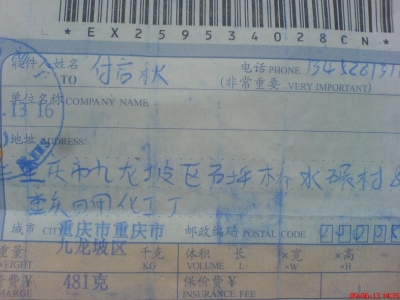 * EX259534028CN *
收件人姓名 电话 PHONE
TO 付 秋 (非常重要 VERY IMPORTANT)
单位名称 COMPANY NAME
.13 16
地址 ADDRESS:
重庆市九龙坡区石坪桥水碾村
重庆 化工厂
城市 CITY 重庆市重庆市 邮政编码 POSTAL CODE
九龙坡区
重量 千克 体积 长 ×宽 ×高
WEIGHT KG VOLUME L ×W ×H
资费 ¥: 481克 保价费 ¥:
INSURANCE FEE